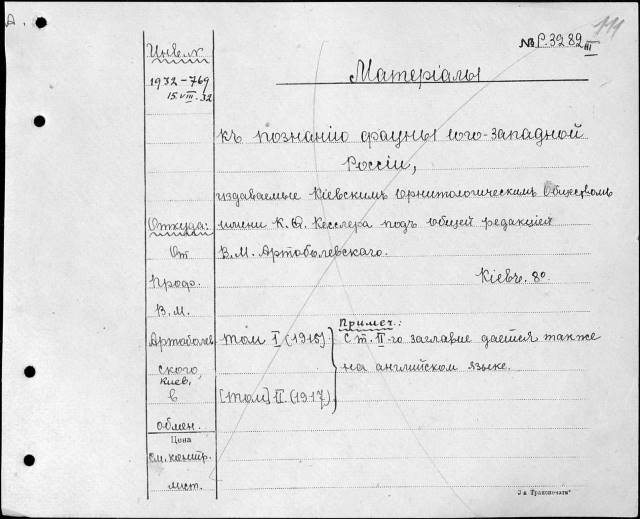 А.
111
№ Р.3282
III
Инв. №
1932-769
15.VIII.32
Матерiалы
къ познанiю фауны юго-западной
Россiи,
издаваемые Кiевскимъ Орнитологическимъ Обществомъ
имени К. Ѳ. Кесслера подъ общей редакцiей
В. М. Артоболевскаго.
Кiевъ. 8°.
Откуда:
От
Проф.
В. М.
Артоболев
ского,
Киев,
в
обмен.
Цена
См. контр.
лист.
Том I (1915)
[Том] II (1917)
Примеч.:
С т. II-го заглавие дается также
на английском языке.
3-я Транспечать"